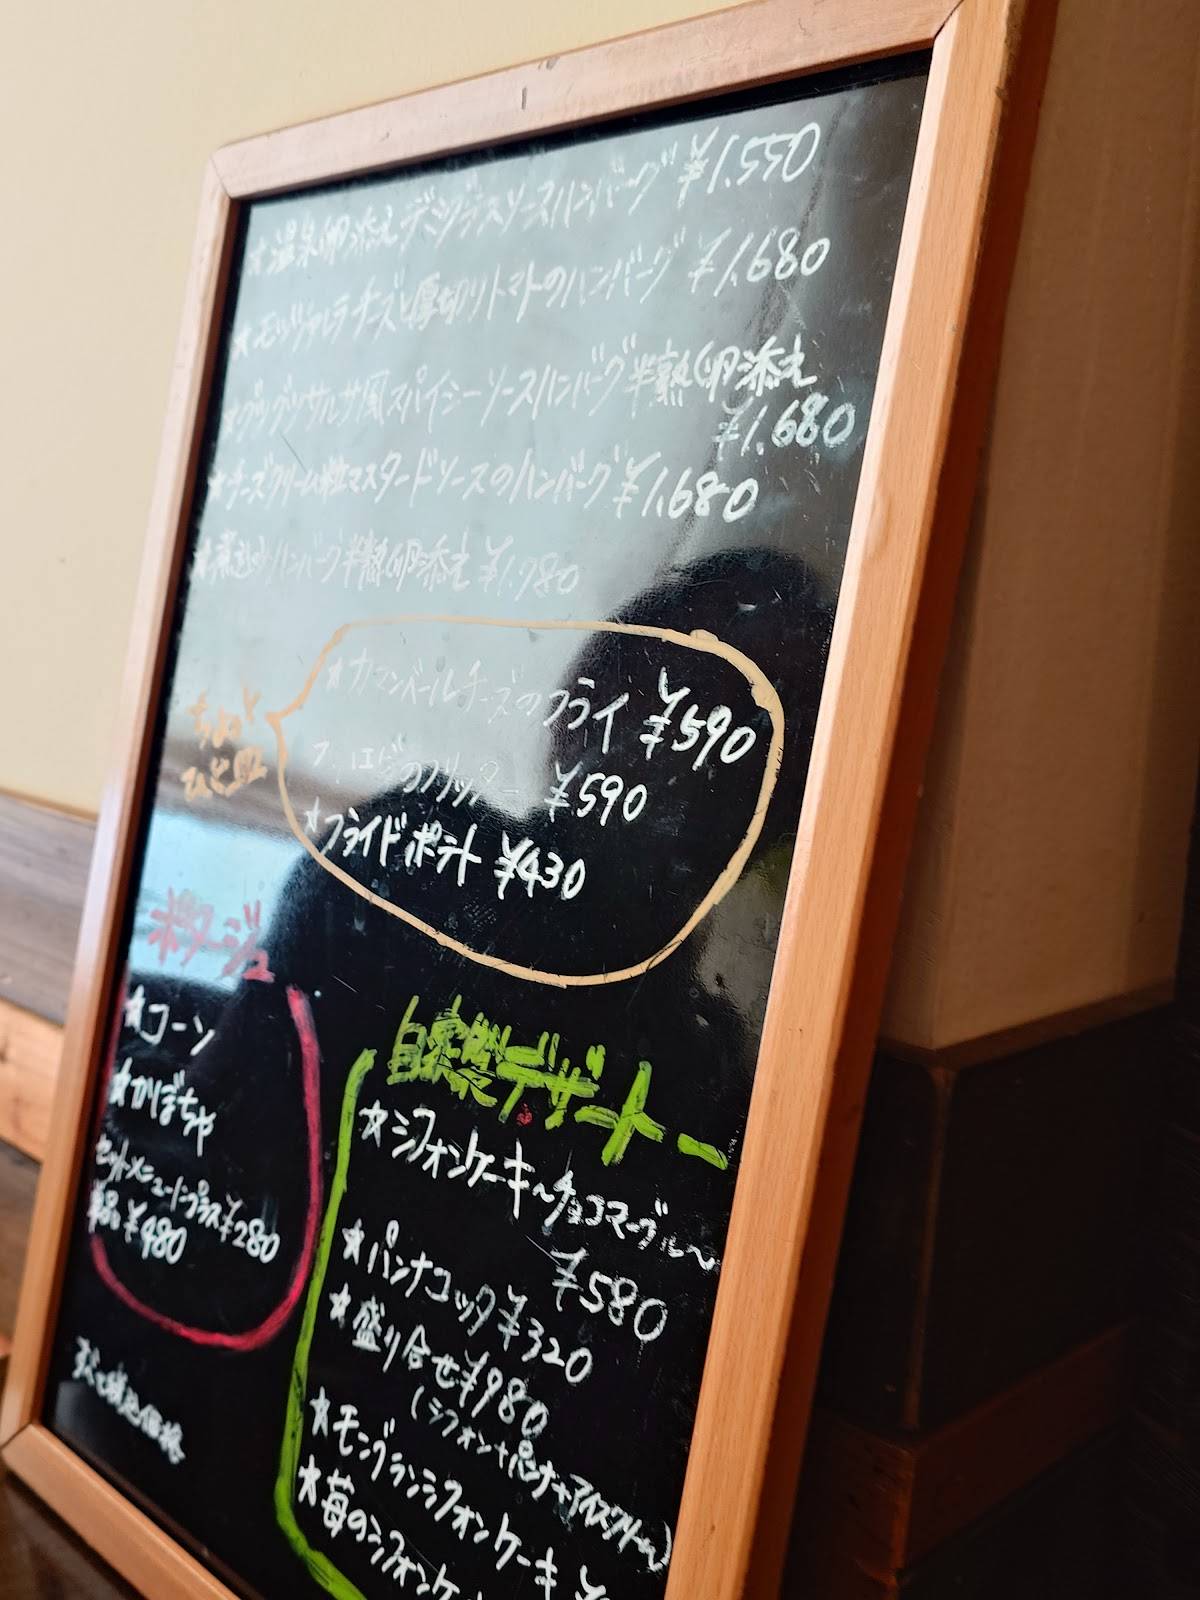 ★温泉卵添えデミグラスソースハンバーグ ¥1,550
★モッツァレラチーズと厚切りトマトのハンバーグ ¥1,680
★グツグツサルサ風スパイシーソースハンバーグ半熟卵添え
¥1,680
★チーズクリーム粒マスタードソースのハンバーグ ¥1,680
★煮込みハンバーグ半熟卵添え ¥1,780
ちょっと
ひと皿
★カマンベールチーズのフライ ¥590
¥590
★フライドポテト ¥430
ポタージュ
★コーン
★かぼちゃ
セットメニューにプラス¥280
単品¥480
すべて税込価格
自家製デザート
★シフォンケーキ〜チョコマーブル〜
¥580
★パンナコッタ ¥320
★盛り合せ¥980
(シフォン+パンナ+アイスクリーム)
★モンブランシフォンケーキ ¥
★苺のシフォンケ